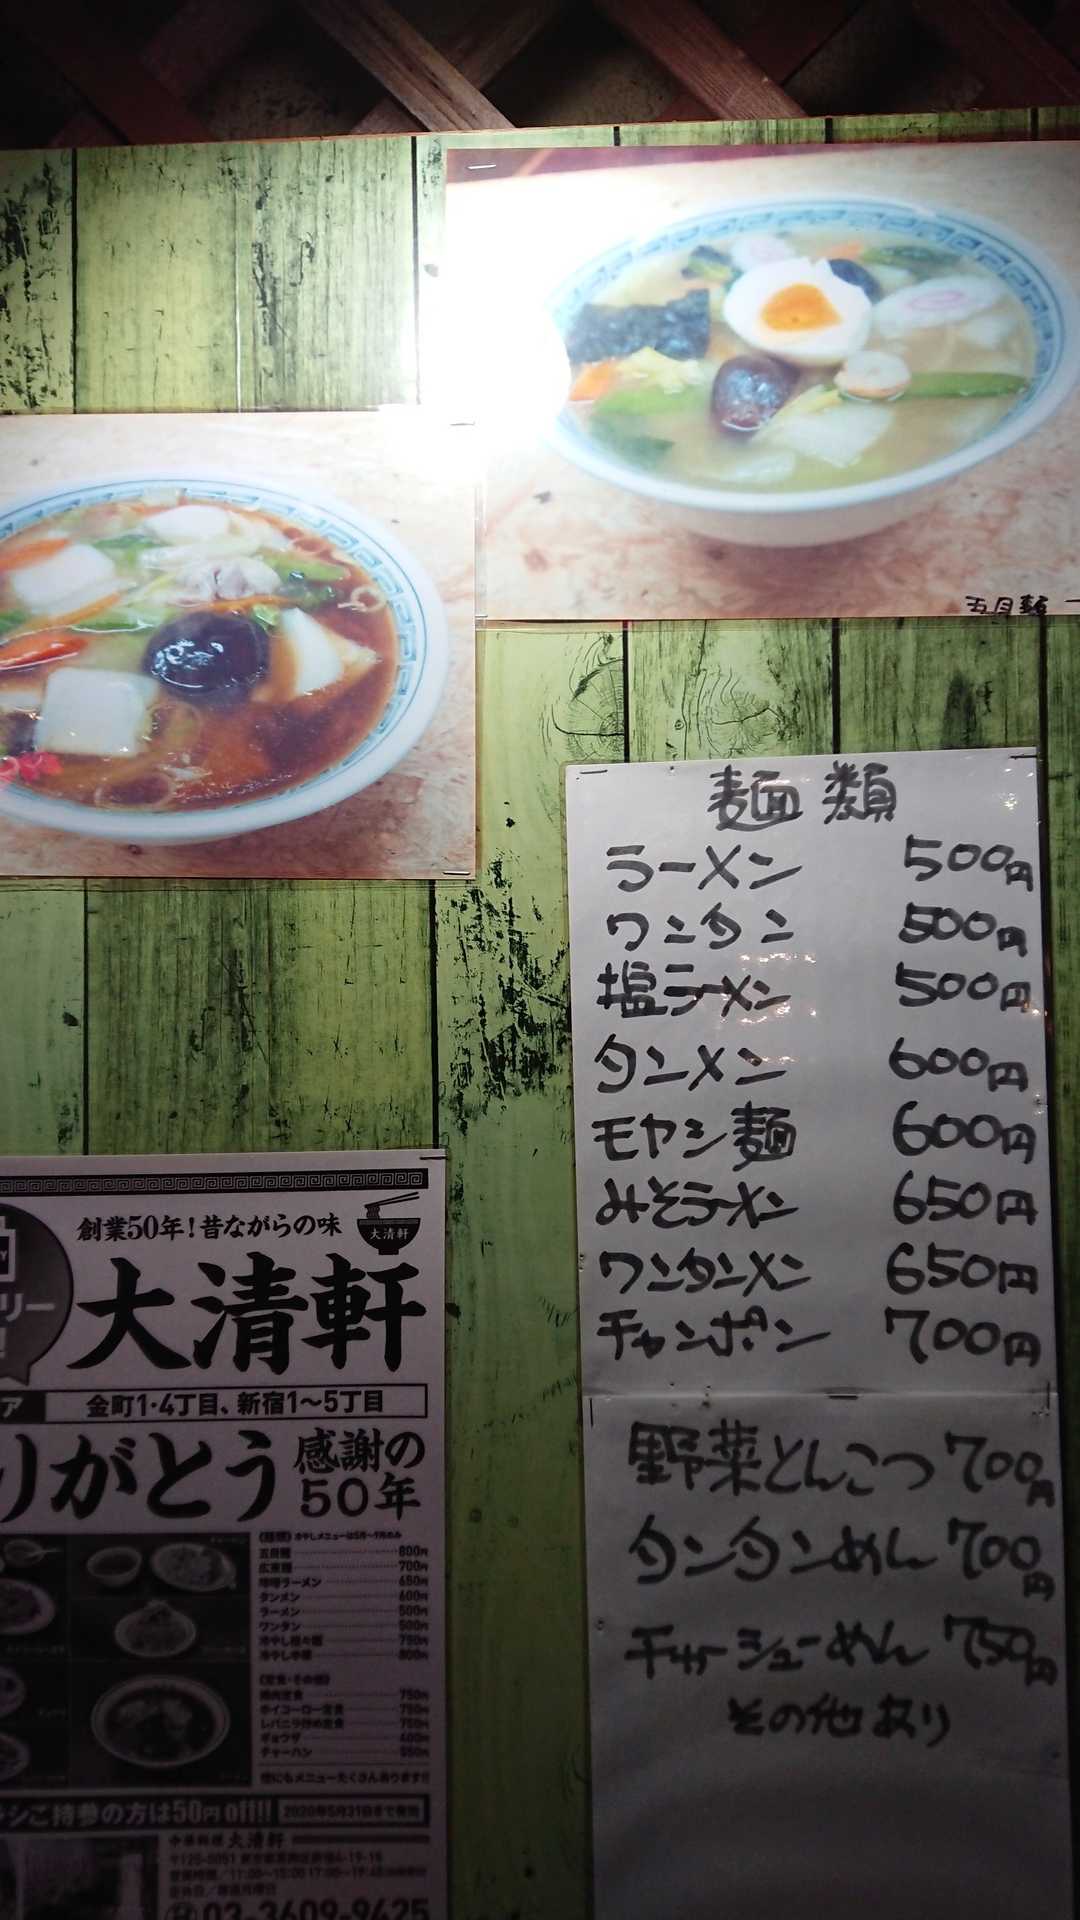 五目麺
麺類
ラーメン 500円
ワンタン 500円
塩ラーメン 500円
タンメン 600円
モヤシ麺 600円
みそラーメン 650円
ワンタンメン 650円
チャンポン 700円
野菜とんこつ 700円
タンタンめん 700円
チャーシューめん 750円
その他あり
創業50年!昔ながらの味
大清軒
大清軒
リー
ア 金町1・4丁目、新宿1〜5丁目
りがとう 感謝の50年
冷やしメニューは5月〜9月のみ
五目麺 800円
広東麺 700円
味噌ラーメン 650円
タンメン 600円
ラーメン 500円
ワンタン 500円
冷やし 750円
冷やし中華 800円
《定食・その他》
焼肉定食 750円
ホイコーロー定食 750円
レバニラ炒め定食 750円
ギョウザ 400円
チャーハン 550円
他にもメニューたくさんあります!!
シご持参の方は50円off!! 2020年5月31日まで有効
中華料理 大清軒
〒125-0051 東京都葛飾区新宿4-19-16
営業時間/11:00〜15:00 17:00〜19:45
定休日/
03-3609-9425